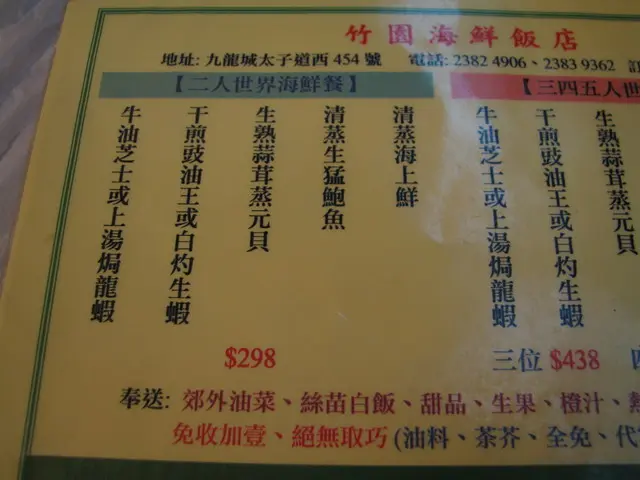 竹園海鮮飯店
地址: 九龍城太子道西 454 號 電話: 2382 4906、2383 9362
【二人世界海鮮餐】
清蒸海上鮮
清蒸生猛鮑魚
生熟蒜茸蒸元貝
干煎豉油王或白灼生蝦
牛油芝士或上湯焗龍蝦
$298
【三四五人世
生熟蒜茸蒸元貝
干煎豉油王或白灼生蝦
牛油芝士或上湯焗龍蝦
三位 $438 四
奉送: 郊外油菜、絲苗白飯、甜品、生果、橙汁、熱
免收加壹、絕無取巧 (油料、茶芥、全免、代